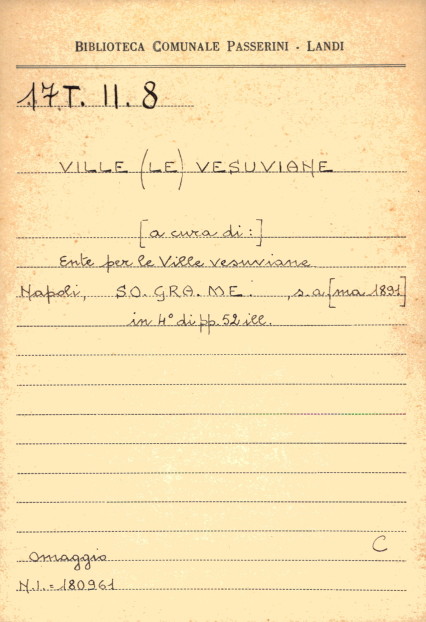 BIBLIOTECA COMUNALE PASSERINI - LANDI
17.T. II. 8
VILLE (LE) VESUVIANE
[a cura di:]
Ente per le Ville vesuviane
Napoli, SO. GRA. ME. , s.a [ma 1891]
in 4° di pp. 52 ill.
C
omaggio
N.I. = 180961